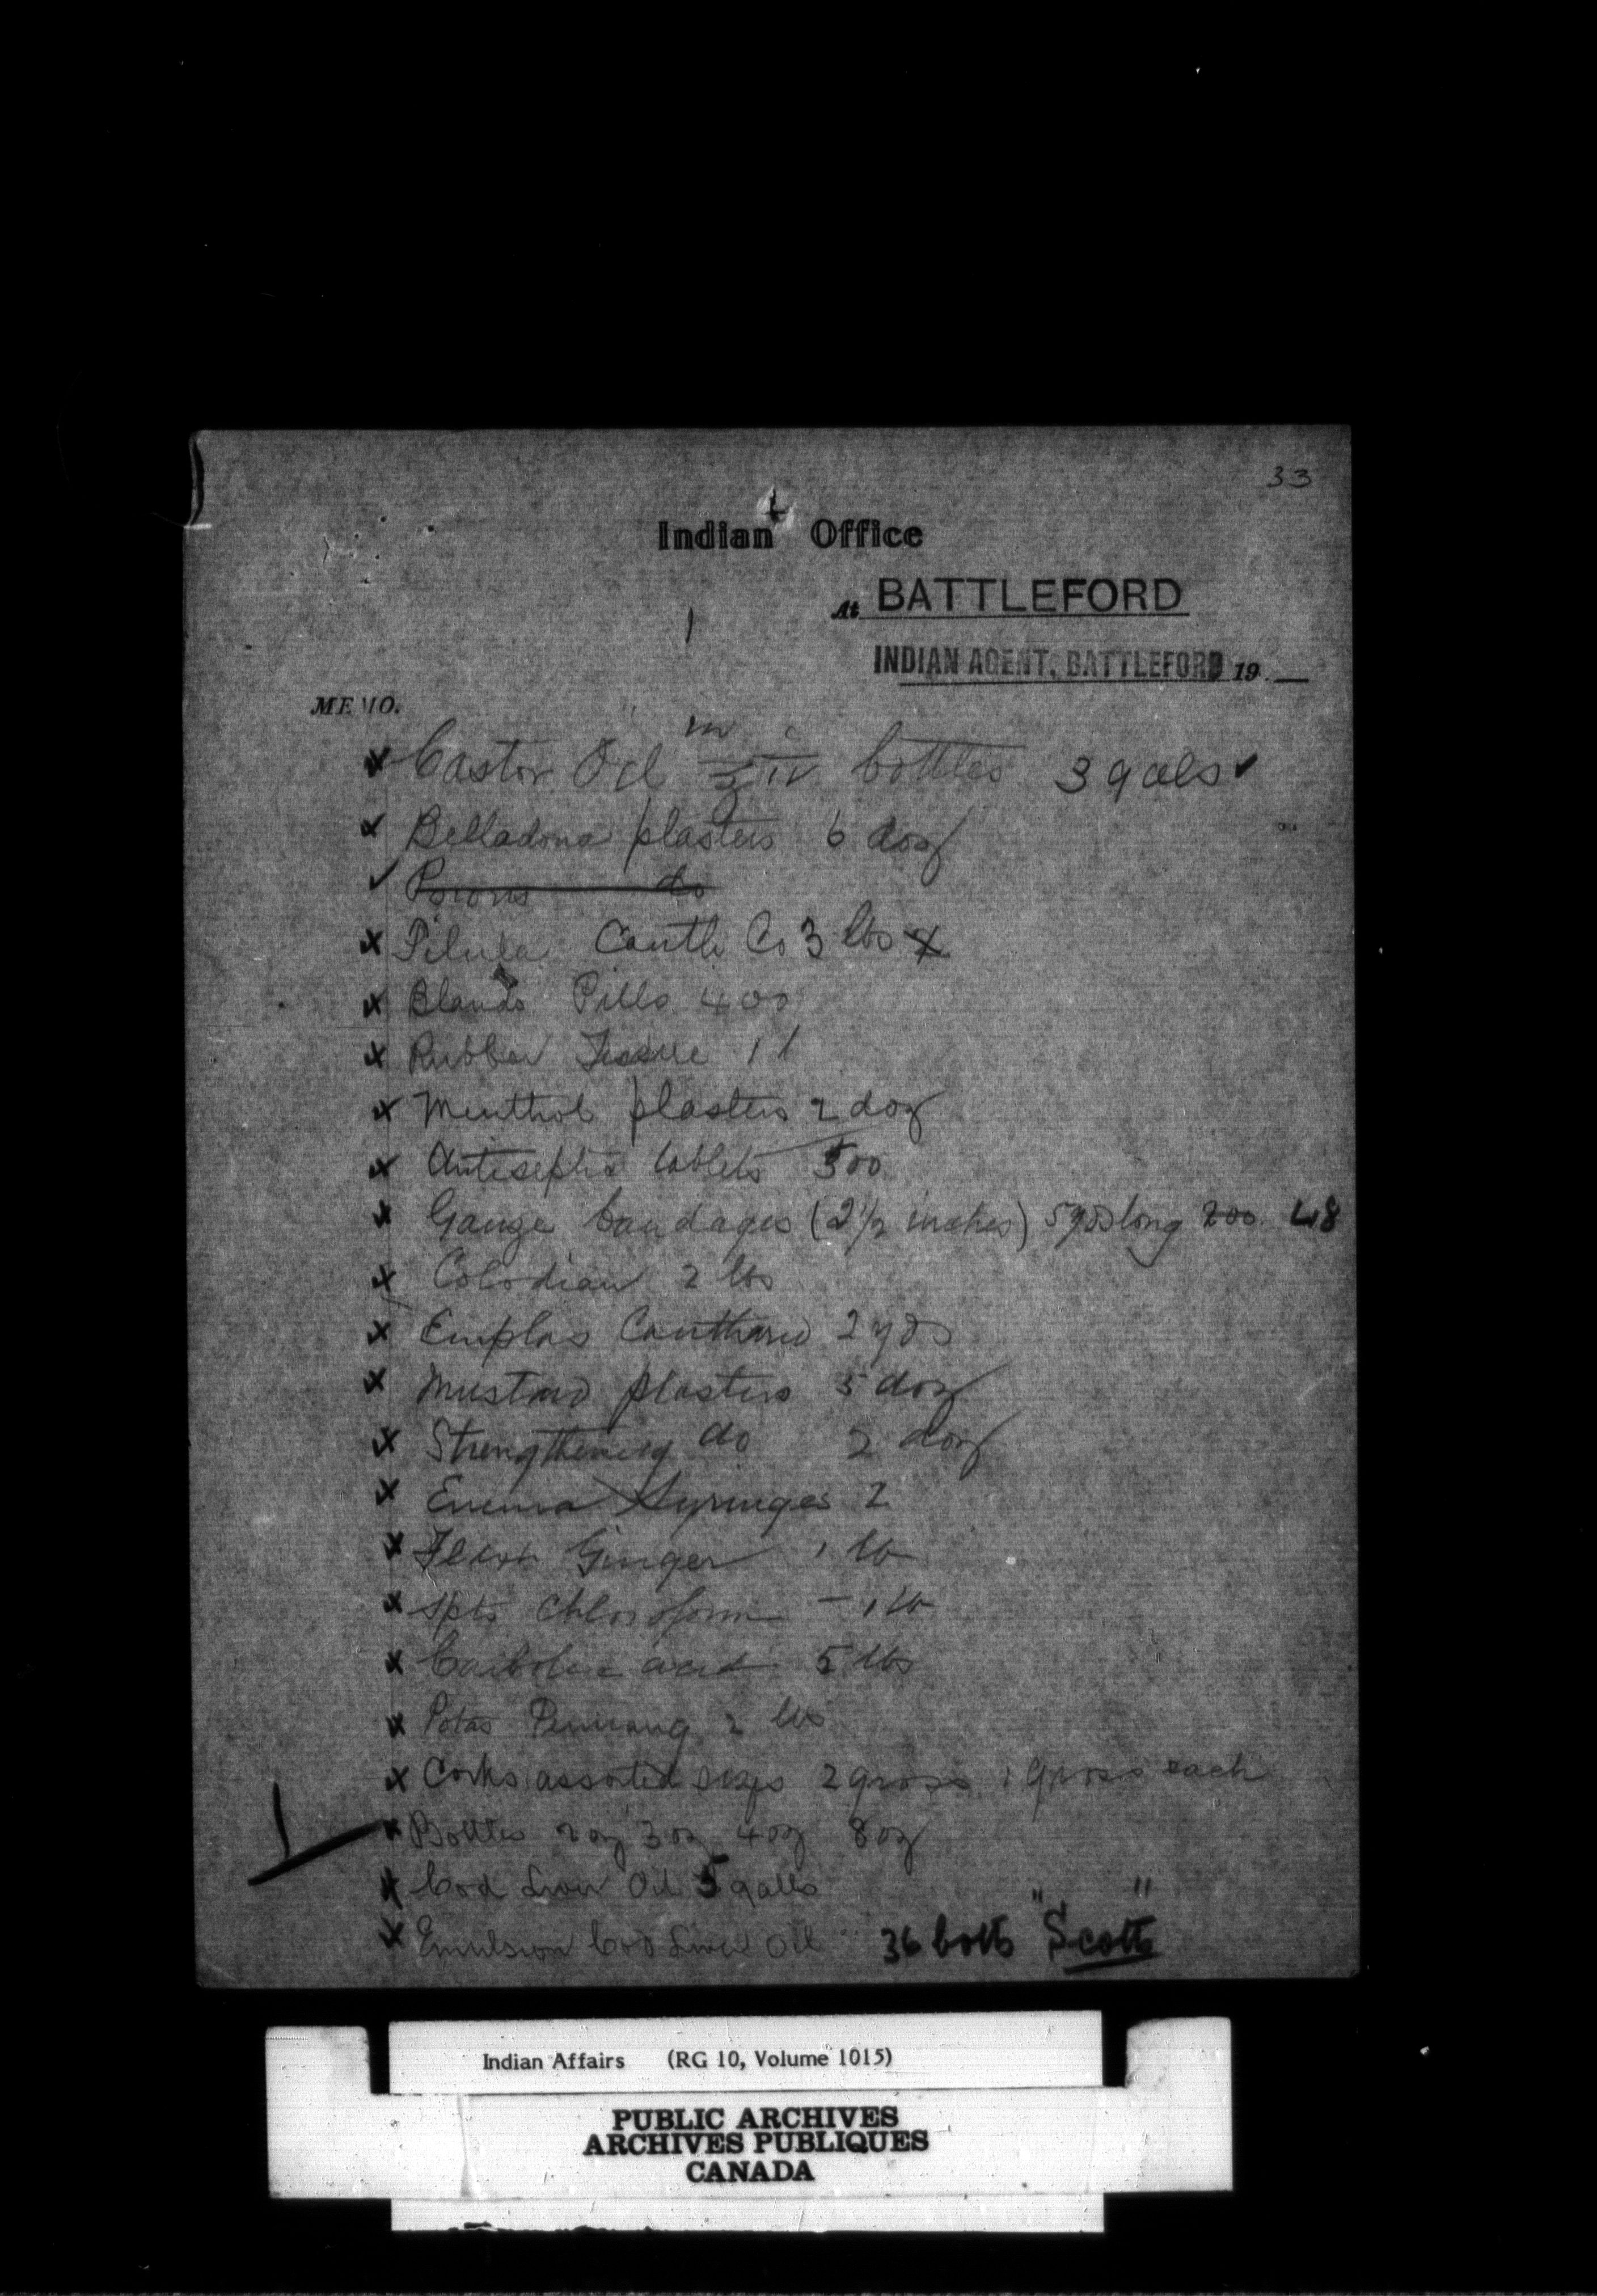 33
Indian Office
At BATTLEFORD
INDIAN AGENT, BATTLEFORD 19
MEMO.
x Castor Oil in ℥iv bottles 3 gals ✓
x Belladona plasters 6 doz
✓ Porous do
x Pilula Canth Co 3 lbs x
x Blauds Pills 400
x Rubber Tissue 1
x Menthol plasters 2 doz
x Antiseptic tablets 500
x Gauze bandages (2 1/2 inches) 5 yds long 200 48
x Colodian 2 lbs
x Emplas Canthard 2 yds
x Mustard plasters 5 doz
x Strengthening do 2 doz
x Enema Syringes 2
x Ginger 1 lb
x Spts Chloroform – 1 lb
x Carbolic acid 5 lbs
x Potas Permang 2 lbs
x Corks assorted sizes 2 gross 1 gross each
x Bottles 2 oz 3 oz 4 oz 8 oz
x Cod Liver Oil 5 galls
x Emulsion Cod Liver Oil 36 botts "Scotts"
Indian Affairs (RG 10, Volume 1015)
PUBLIC ARCHIVES
ARCHIVES PUBLIQUES
CANADA